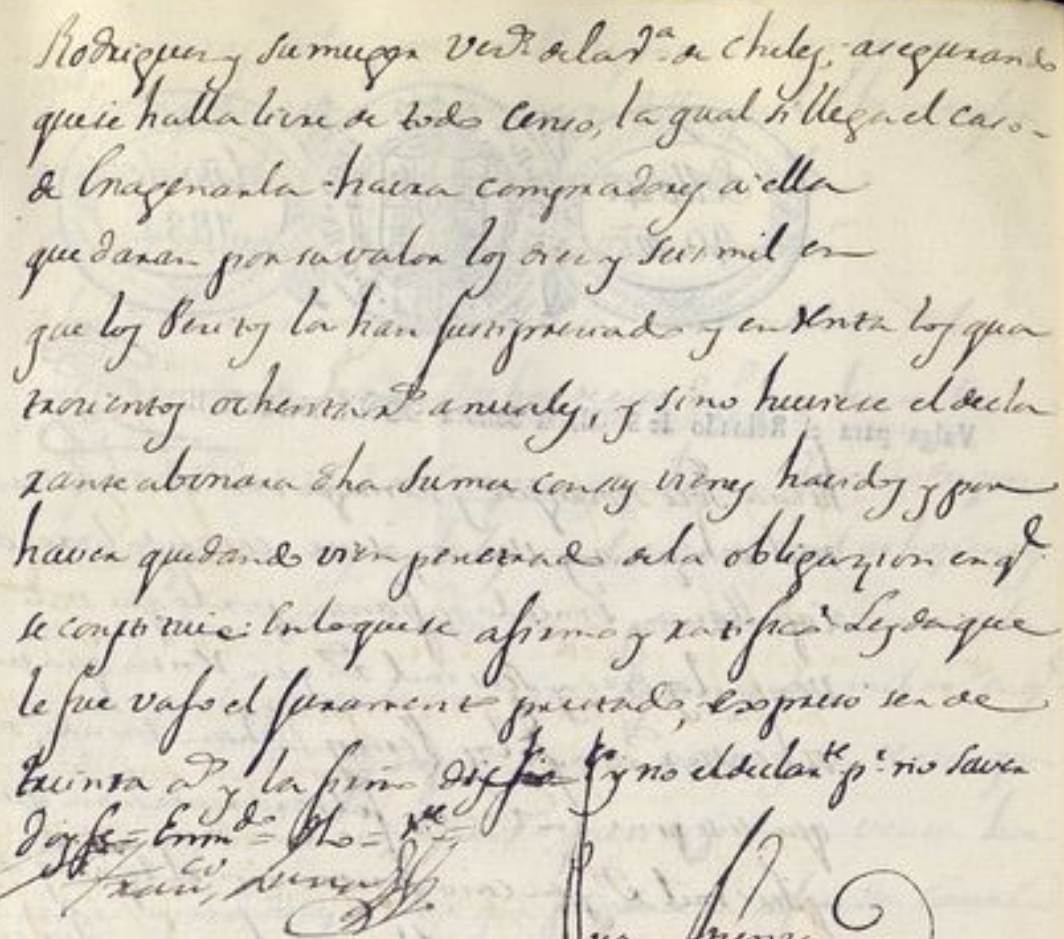 Rodriguez y su muger vez.s de la v.a de Cheles, asegurando
que se halla livre de todo Censo, la qual si llega el caso
de Enagenarla havra compradores a ella
que daran por su valor los diez y seis mil en
que los Peritos la han justipreciado y en renta los qua
trocientos ochenta r.s anuales, y sino huviese el decla
rante abonara dha suma con sus vienes havidos y por
haver quedando vien penetrado de la obligazion en q.e
se constituie: En lo que se afirmo y ratifico Leyda que
le fue vajo el juramento prestado, expreso ser de
treinta a.s y la firmo y no el declar.te p.r no saver
doy fe = Enm.do =
Fran.co